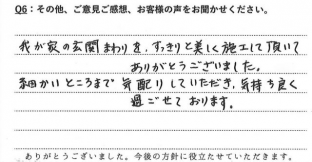 Q6：その他、ご意見ご感想、お客様の声をお聞かせください。
我が家の玄関まわりを、すっきりと美しく施工して頂いて
ありがとうございました。
細かいところまで気配りしていただき、気持ち良く
過ごせております。
ありがとうございました。今後の方針に役立たせていただきます。